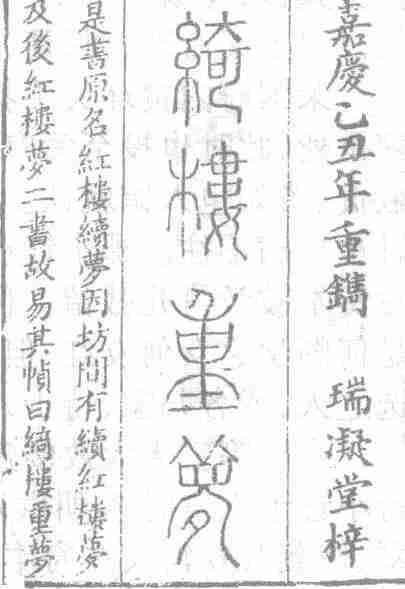 嘉慶乙丑年重鐫　瑞凝堂梓
綺樓重夢
是書原名紅樓續夢因坊間有續紅樓夢
及後紅樓夢二書故易其幀曰綺樓重夢